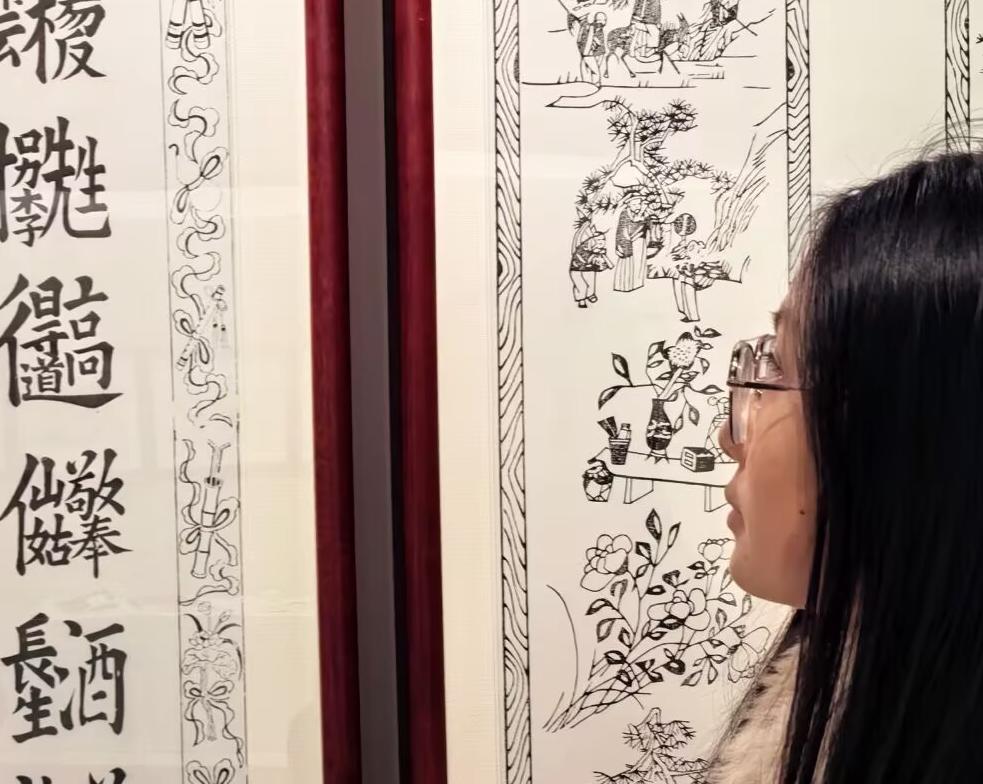 拐李先生
得道高
仙姑敬奉
長生酒